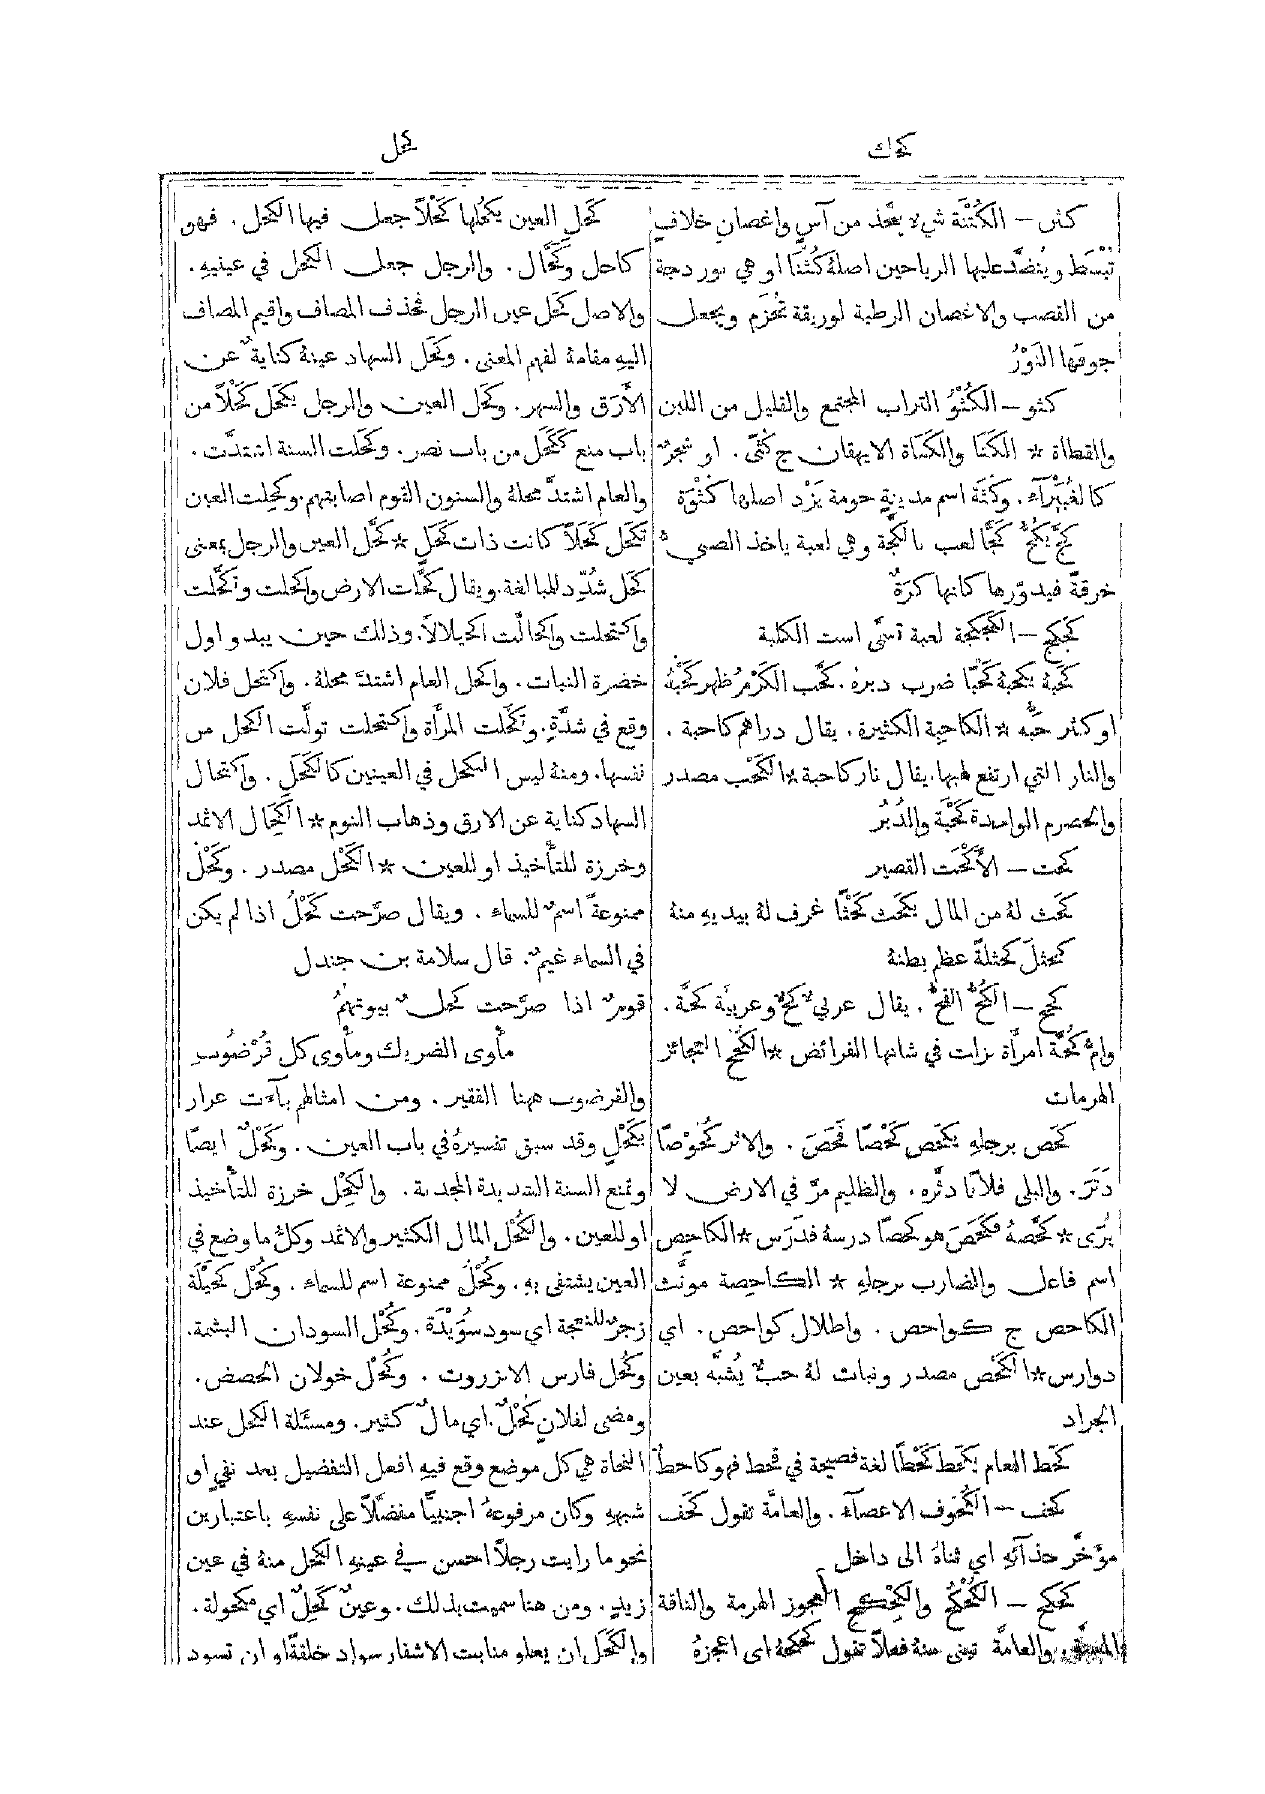 كحك
كحل
كثن – الكُثْنَة شيء يتَّخذ من آسٍ واغصانِ خلافٍ
تُبْسَط ويُنضَّد عليها الرياحين اصلهُ كُثْنَا او هي نوردجة
من القصب والاغصان الرطبة لوريقة تُحزَم ويجعل
جوفها النَوْرُ
كثو – الكُثْوُ التراب المجتمع والقليل من اللبن
والقطاة * الكَثَا والكَثاة الايهقان ج كُثًى. او شجرٌ
كالغُبَيْرَآء. وكُثَة اسم مدينةٍ حومة يَزْد اصلها كُثْوَة
كجَّ يَكُجُّ كَجًّا لعب بالكُجَّة وهي لعبة ياخذ الصبيُّ
خرقةً فيدوّرها كانها كرةٌ
كجكج – الكَجْكَجة لعبة تسمَّى است الكلبة
كَحَبهُ يكحَبهُ كَحْبًا ضرب دبرهُ. كحَّب الكَرْمُ ظهر كَحْبُهُ
او كثر حَبُّه * الكاحبة الكثيرة. يقال دراهم كاحبة.
والنار التي ارتفع لهبها. يقال نار كاحبة * الكَحْب مصدر
والحصرم الواحدة كَحْبَة والدُبُر
كحت – الأَكْحَت القصير
كحَث لهُ من المال يكحَث كَحْثًا غرف لهُ بيديهِ منهُ
كحثلَ كحثلةً عظم بطنهُ
كحح – الكُحُّ القحُّ. يقال عربيٌّ كحٌّ وعربية كحَّة.
وامُّ كُحَّة امرأة نزلت في شانها الفرائض * الكُحُح العجائز
الهرمات
كحَص برجلهِ يكحَص كَحْصًا فَحَصَ. والاثر كُحُوصًا
دَثَرَ. والبلى فلانًا دثَّره. والظليم مرَّ في الارض لا
يُرَى * كحَّصهُ فكحَصَ هو كحصًا درسهُ فدَرَس * الكاحص
اسم فاعل والضارب برجلهِ * الكاحصة مونَّث
الكاحص ج كواحص. واطلال كواحص. اي
دوارس * الكَحْص مصدر ونبات لهُ حبٌّ يُشبَّه بعين
الجراد
كحَط العام يكحَط كَحْطًا لغة فصيحة في قحط فهو كاحطٌ
كحف – الكُحُوف الاعضآء. والعامَّة تقول كَحَف
مؤخَّر حذآئِهِ اي ثناهُ الى داخل
كحكح – الكُحْكُح والكِحْكِح العجوز الهرمة والناقة
المسنَّة. والعامَّة تبني منهُ فعلاً تقول كحكحهُ اي اعجزهُ
كَحَل العين يكحُلها كَحْلاً جعل فيها الكحل. فهو
كاحل وكَحَّال. والرجل جعل الكحل في عينيهِ.
والاصل كحَل عين الرجل فحُذف المضاف واقيم المضاف
اليهِ مقامهُ لفهم المعنى. وكحَل السهاد عينهُ كنايةٌ عن
الأَرَق والسهر. وكحَل العين والرجل يكحَل كَحْلاً من
باب منع ككحَل من باب نصر. وكحَلت السنة اشتدَّت.
والعام اشتدَّ محلهُ والسنون القوم اصابتهم. وكحِلت العين
تكحَل كَحَلاً كانت ذات كَحَلٍ * كحَّل العين والرجل بمعنى
كحَل شُدِّد للمبالغة. ويقال كحَّلت الارض واكحلت وتكحَّلت
واكتحلت واكحالَّت اكحيلالاً. وذلك حين يبدو اول
خضرة النبات. واكحل العام اشتدَّ محلهُ. واكتحل فلان
وقع في شدَّةٍ. وتكحَّلت المرأَة واكتحلت تولَّت الكحل من
نفسها. ومنهُ ليس التكحل في العينين كالكَحَل. واكتحال
السهاد كناية عن الارق وذهاب النوم * الكِحَال الاثمد
وخرزة للتأخيذ او للعين * الكَحْل مصدر. وكَحْلُ
ممنوعةً اسمٌ للسماء. ويقال صرَّحت كَحْلُ اذا لم يكن
في السماء غيمٌ. قال سلامة بن جندل
قومٌ اذا صرَّحت كحلٌ بيوتهُمُ
مأْوى الضريك ومأْوى كل قُرْضُوبِ
والقرضوب ههنا الفقير. ومن امثالهم بآءت عرار
بكَحْلٍ وقد سبق تفسيرهُ في باب العين. وكَحْلٌ ايضًا
وتمنع السنة الشديدة المجدبة. والكَحْل خرزة للتأْخيذ
او للعين. والكُحْل المال الكثير والاثمد وكلُّ ما وضع في
العين يشتفى بهِ. وكُحْلُ ممنوعة اسم للسماء. وكُحْل كَحِيْلَة
زجرٌ للنعجة اي سود سُوَيْدَة. وكُحْل السودان البشمة.
وكُحل فارس الانزروت. وكُحْل خولان الحضض.
ومضى لفلانٍ كُحْلٌ. اي مالٌ كثير. ومسئلة الكحل عند
النحاة هي كل موضع وقع فيهِ افعل التفضيل بعد نفيٍ او
شبههِ وكان مرفوعهُ اجنبيًّا مفضَّلاً على نفسهِ باعتبارين
نحو ما رايت رجلاً احسن في عينهِ الكحل منهُ في عين
زيدٍ. ومن هنا سميت بذلك. وعينٌ كَحِلٌ اي مكحولة.
والكَحَل ان يعلو منابت الاشفار سواد خلقةً او ان تسود